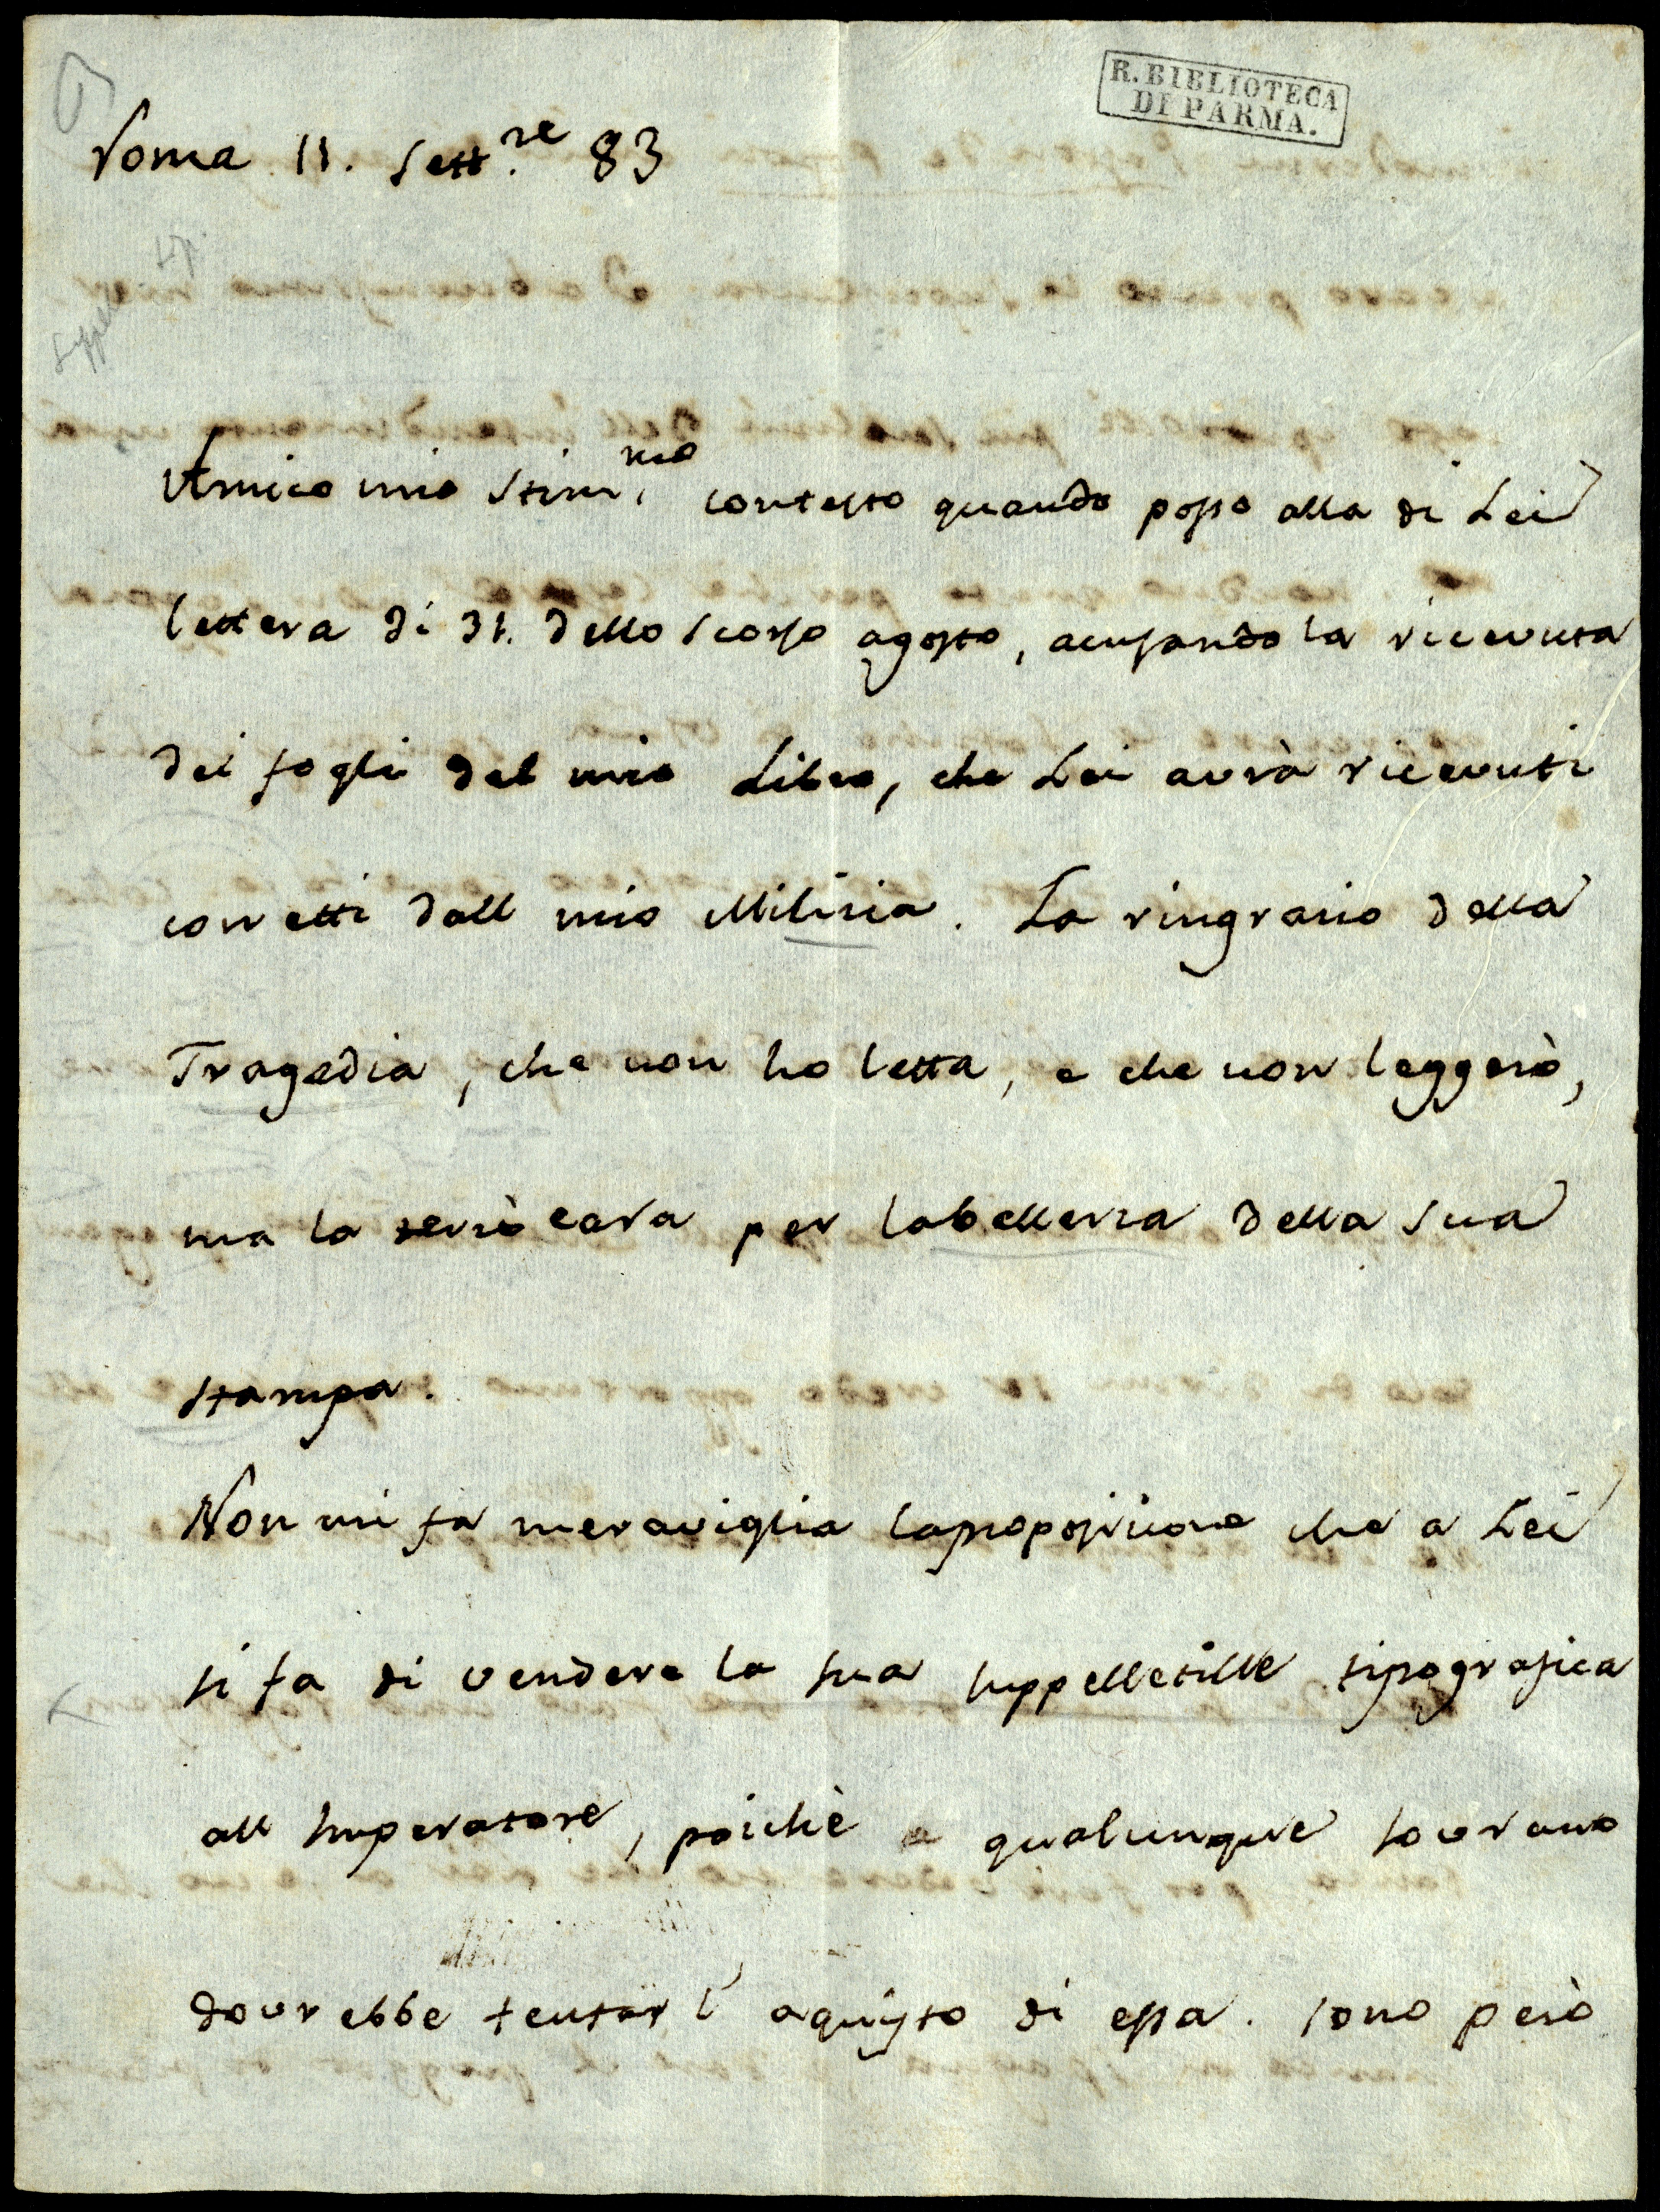 R. BIBLIOTECA
DI PARMA.
Roma 11. Sett.re 83
Amico mio Stim.mo contesto quando posso alla di Lei
lettera di 31. dello scorso agosto, acusando la ricevuta
dei fogli del mio Libro, che Lei avrà ricevuti
corretti dall mio Milizia. La ringrazio della
Tragedia, che non ho letta, e che non leggerò,
ma la terrò cara per la bellezza della sua
stampa.
Non mi fa meraviglia la proposizione che a Lei
si fa di vendere la sua suppelletille tipografica
all Imperatore, poichè a qualunque sovrano
dovrebbe tentar l'aquisto di essa. sono però